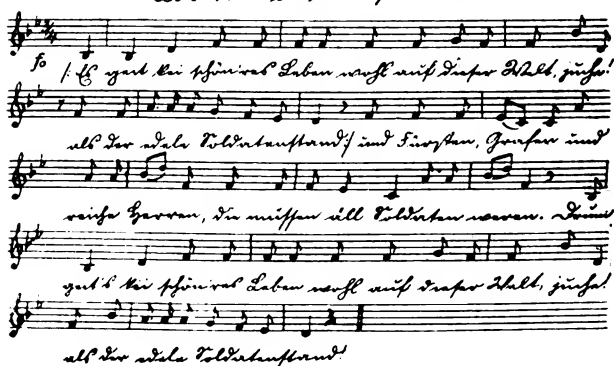 /: Es geit kei schön'res Leben wohl auf dieser Welt, juche!
als der edele Soldatenstand :/ und Fürsten, Grafen und
reiche Herren, die müssen äll Soldaten weren. Drum
geit's kei schön'res Leben wohl auf dieser Welt, juche!
als der edele Soldatenstand!